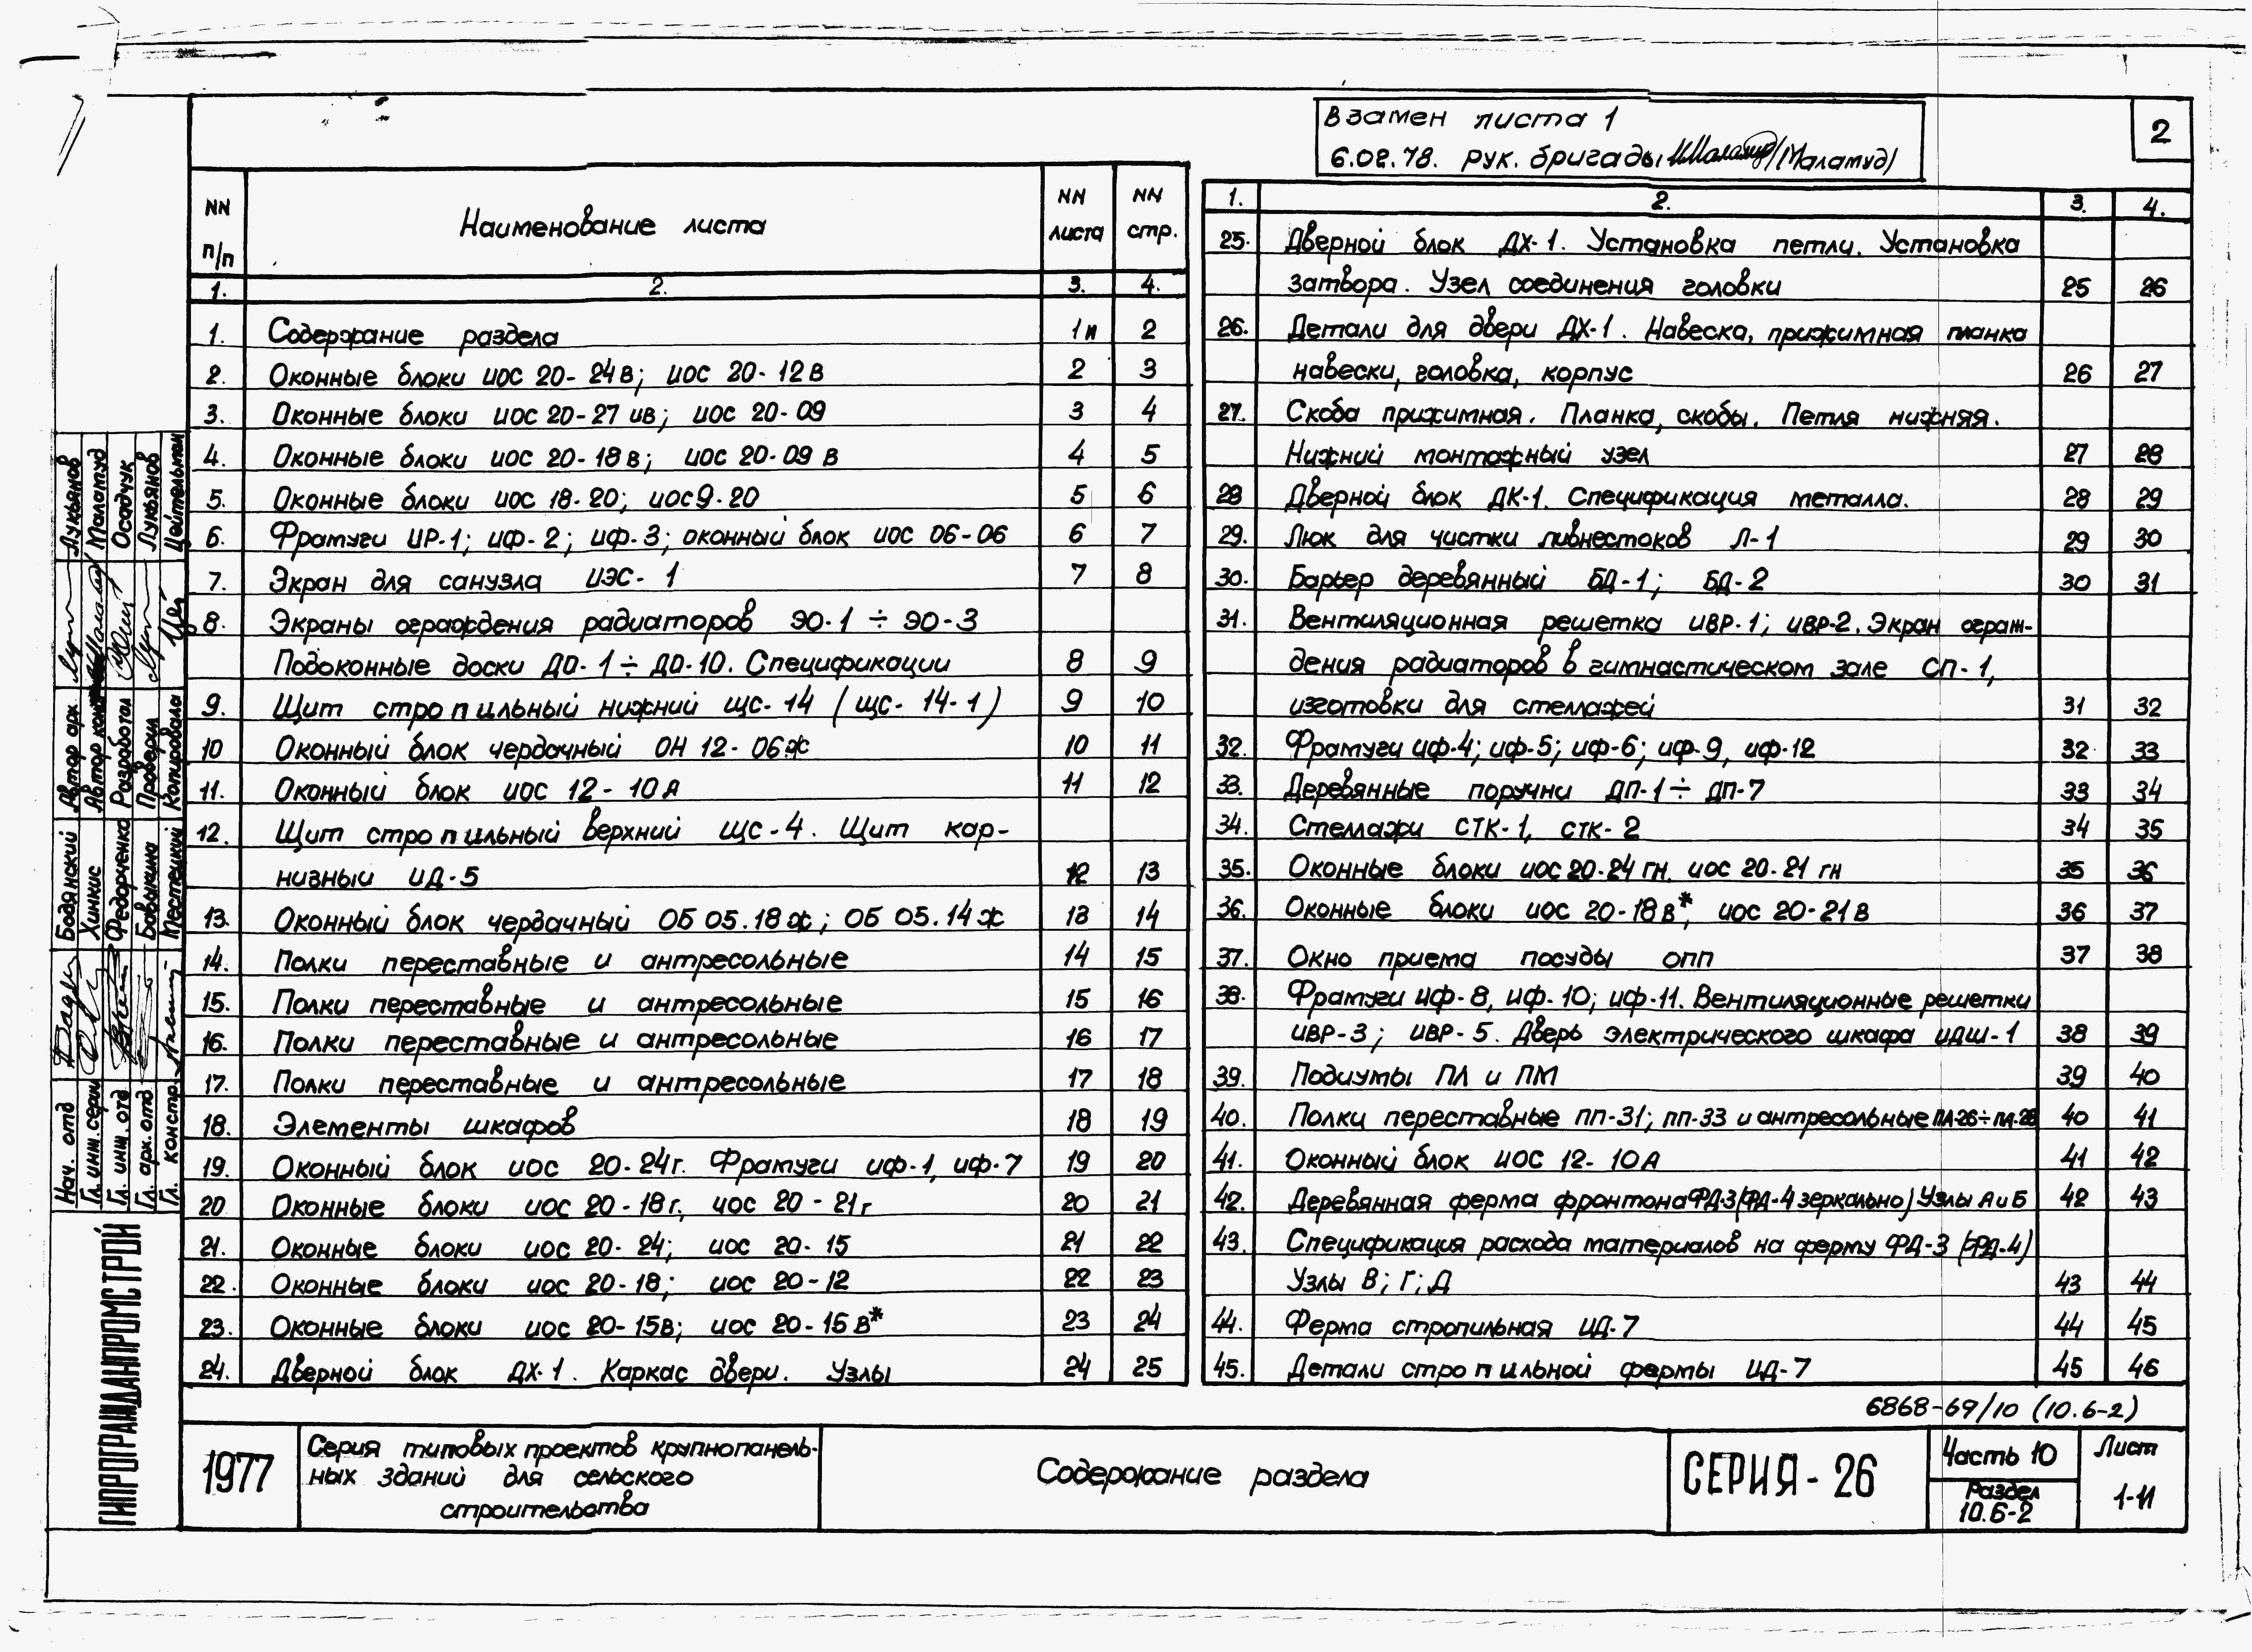 Взамен листа 1
6.02.78. рук. бригады (Маламуд)
2
NN п/п Наименование листа NN листа NN стр.
1. 2. 3. 4.
1. Содержание раздела 1и 2
2. Оконные блоки иос 20-24в; иос 20-12в 2 3
3. Оконные блоки иос 20-27 ив; иос 20-09 3 4
4. Оконные блоки иос 20-18в; иос 20-09 в 4 5
5. Оконные блоки иос 18-20; иос 9-20 5 6
6. Фрамуги ИР-1; иф-2; иф-3; оконный блок иос 06-06 6 7
7. Экран для санузла ИЭС-1 7 8
8. Экраны ограждения радиаторов ЭО-1 ÷ ЭО-3
Подоконные доски ДО-1 ÷ ДО-10. Спецификации 8 9
9. Щит стропильный нижний щс-14 (щс-14-1) 9 10
10 Оконный блок чердачный ОН 12-06ж 10 11
11. Оконный блок иос 12-10А 11 12
12. Щит стропильный верхний щс-4. Щит кар-
низный ИД-5 12 13
13. Оконный блок чердачный ОБ 05.18ж; ОБ 05.14ж 13 14
14. Полки переставные и антресольные 14 15
15. Полки переставные и антресольные 15 16
16. Полки переставные и антресольные 16 17
17. Полки переставные и антресольные 17 18
18. Элементы шкафов 18 19
19. Оконный блок иос 20-24г. Фрамуги иф-1, иф-7 19 20
20 Оконные блоки иос 20-18г, иос 20-21г 20 21
21. Оконные блоки иос 20-24; иос 20-15 21 22
22. Оконные блоки иос 20-18; иос 20-12 22 23
23. Оконные блоки иос 20-15в; иос 20-15в* 23 24
24. Дверной блок ДХ-1. Каркас двери. Узлы 24 25
1. 2. 3. 4.
25. Дверной блок ДХ-1. Установка петли. Установка
затвора. Узел соединения головки 25 26
26. Детали для двери ДХ-1. Навеска, прижимная планка
навески, головка, корпус 26 27
27. Скоба прижимная. Планка, скобы. Петля нижняя.
Нижний монтажный узел 27 28
28 Дверной блок ДК-1. Спецификация металла. 28 29
29. Люк для чистки ливнестоков Л-1 29 30
30. Барьер деревянный БД-1; БД-2 30 31
31. Вентиляционная решетка ИВР-1; ИВР-2. Экран ограж-
дения радиаторов в гимнастическом зале СП-1,
изготовки для стеллажей 31 32
32. Фрамуги иф-4; иф-5; иф-6; иф-9, иф-12 32 33
33. Деревянные поручни ДП-1 ÷ ДП-7 33 34
34. Стеллажи СТК-1, СТК-2 34 35
35. Оконные блоки иос 20-24 гн, иос 20-21 гн 35 36
36. Оконные блоки иос 20-18в*, иос 20-21в 36 37
37. Окно приема посуды ОПП 37 38
38. Фрамуги иф-8, иф-10; иф-11. Вентиляционные решетки
ИВР-3; ИВР-5. Дверь электрического шкафа ИДШ-1 38 39
39. Подиумы ПЛ и ПМ 39 40
40. Полки переставные ПП-31; ПП-33 и антресольные ПА-26÷ПА-28 40 41
41. Оконный блок ИОС 12-10А 41 42
42. Деревянная ферма фронтона ФД-3 (ФД-4 зеркально) Узлы А и Б 42 43
43. Спецификация расхода материалов на ферму ФД-3 (ФД-4)
Узлы В; Г; Д 43 44
44. Ферма стропильная ИД-7 44 45
45. Детали стропильной фермы ИД-7 45 46
6868-69/10 (10.6-2)
1977
Серия типовых проектов крупнопанель-
ных зданий для сельского
строительства
Содержание раздела
СЕРИЯ-26
Часть 10
Раздел
10.Б-2
Лист
1-И
ГИПРОГРАЖДАНПРОМСТРОЙ
Нач. отд Бодянский Автор арх. Лукьянов
Гл. инж. серии Хинкис Автор конс Маламуд
Гл. инж. отд Федорченко Разработал Осадчук
Гл. арх. отд Бабыкина Проверил Лукьянов
Гл. констр. Местецкий Копировала Цейтельман